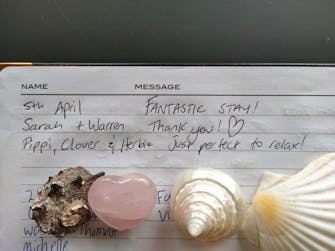 NAME MESSAGE
5th April FANTASTIC STAY!
Sarah + Warren Thank you! ♡
Pippi, Clover & Herbie Just perfect to relax!
michelle